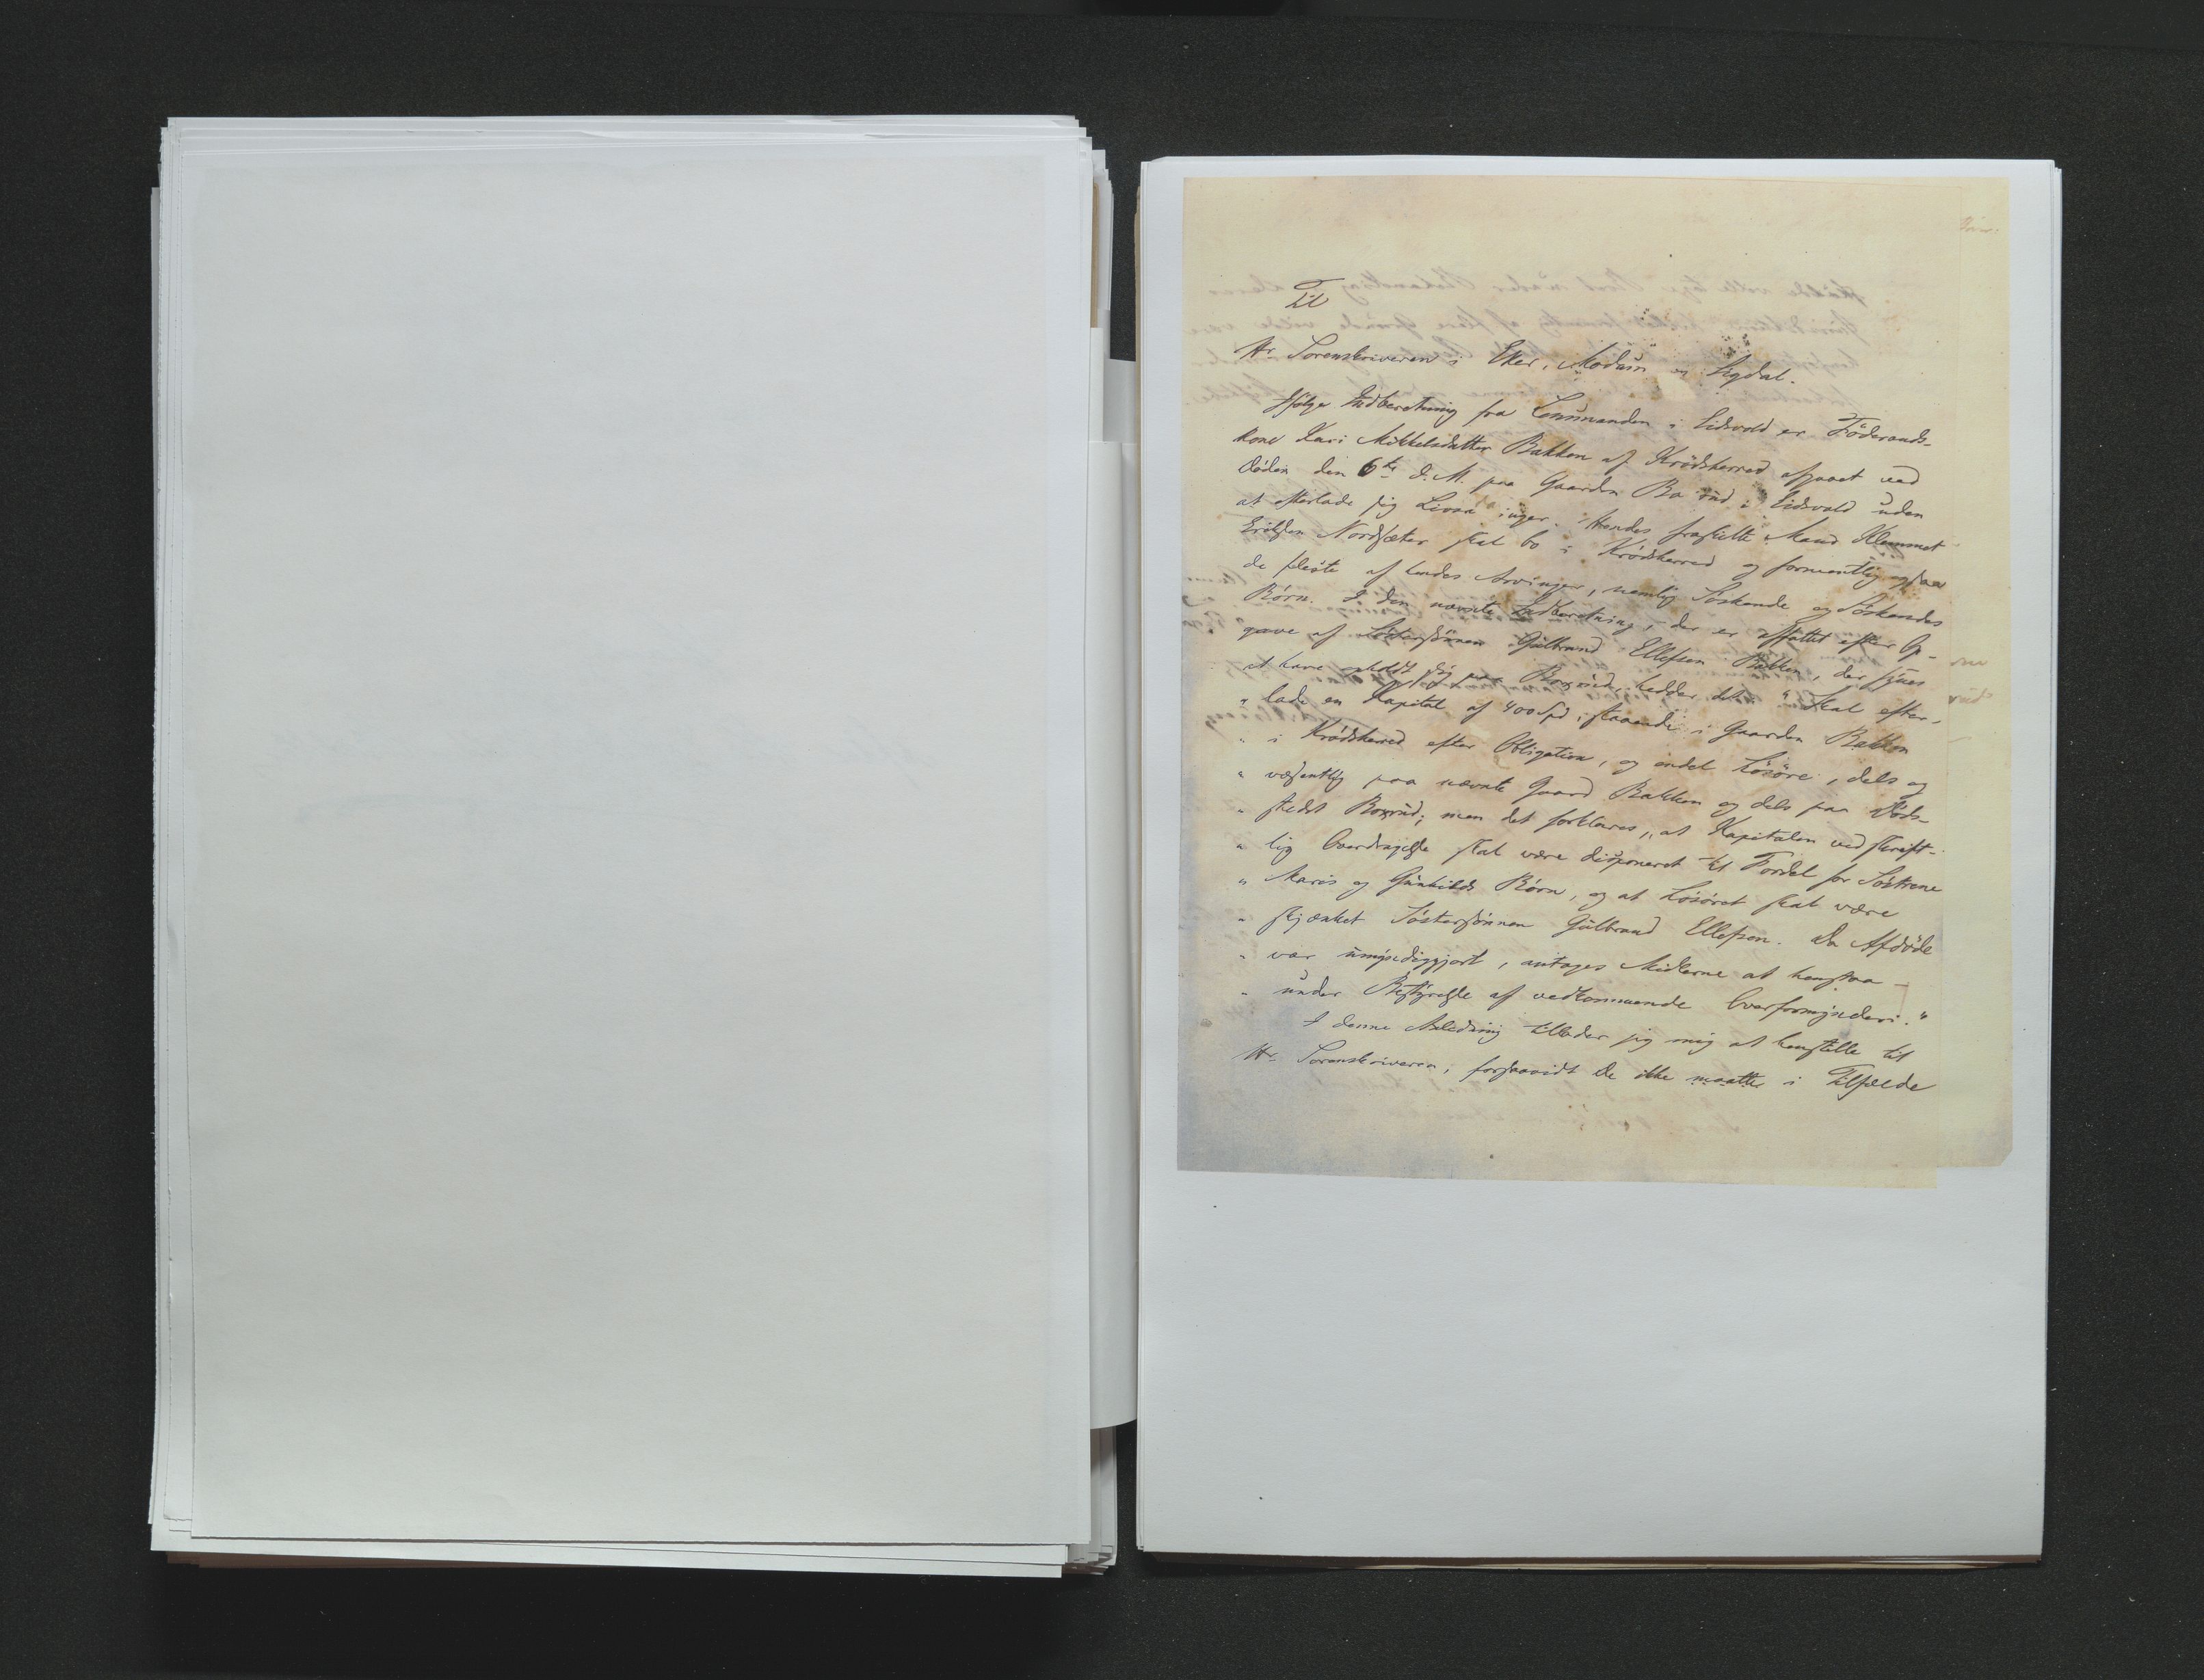 Til
Hr. Sorenskriveren i Eker, Modum og Sigdal.
Ifølge Indberetning fra Lensmanden i Eidsvold er Föderaads-
kone Kari Mikkelsdatter Bakken af Krödsherred afgaaet ved
Döden den 6te d. M. paa Gaarden Bo rud i Eidsvold uden
at efterlade sig Livsa inger. Hendes fraskilte Mand Klemmet
Eriksen Nordsæter skal bo i Krödsherred og formentlig ogsaa
de fleste af hendes Arvinger, nemlig Söskende og Söskendes
Börn. I den nævnte Indberetning, der er affattet efter Op-
gave af Söstersönnen Gulbrand Ellefsen Bakken, der synes
at have opholdt sig paa Boxrud, hedder det: "Skal efter-
" lade en Kapital af 400 Spd, staaende i Gaarden Bakken
" i Krödsherred efter Obligation, og endel Lösöre, dels og
" væsentlig paa nævnte Gaard Bakken og dels paa Döds-
" stedet Boxrud; men det forklares, at Kapitalen ved skrift-
" lig Overdragelse skal være disponeret til Fordel for Söstrene
" Maris og Gunhilds Börn, og at Lösöret skal være
" skjænket Söstersönnen Gulbrand Ellefsen. Da Afdöde
" var umyndiggjort, antages Midlerne at henstaa -
" under Bestyrelse af vedkommende Overformynderi."
I denne Anledning tillader jeg mig at henstille til
Hr. Sorenskriveren, forsaavidt De ikke maatte i Tilfælde